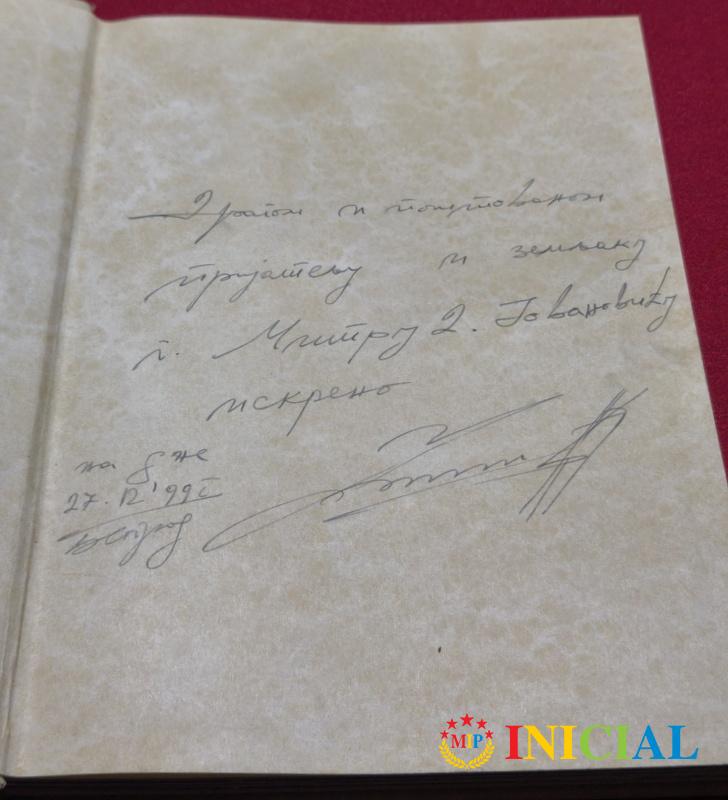 Драгом и поштованом
пријатељу и земљаку
г. Митру Д. Јовановићу
искрено
на дне
27. 12' 99 г
Београд
MIP
INICIAL